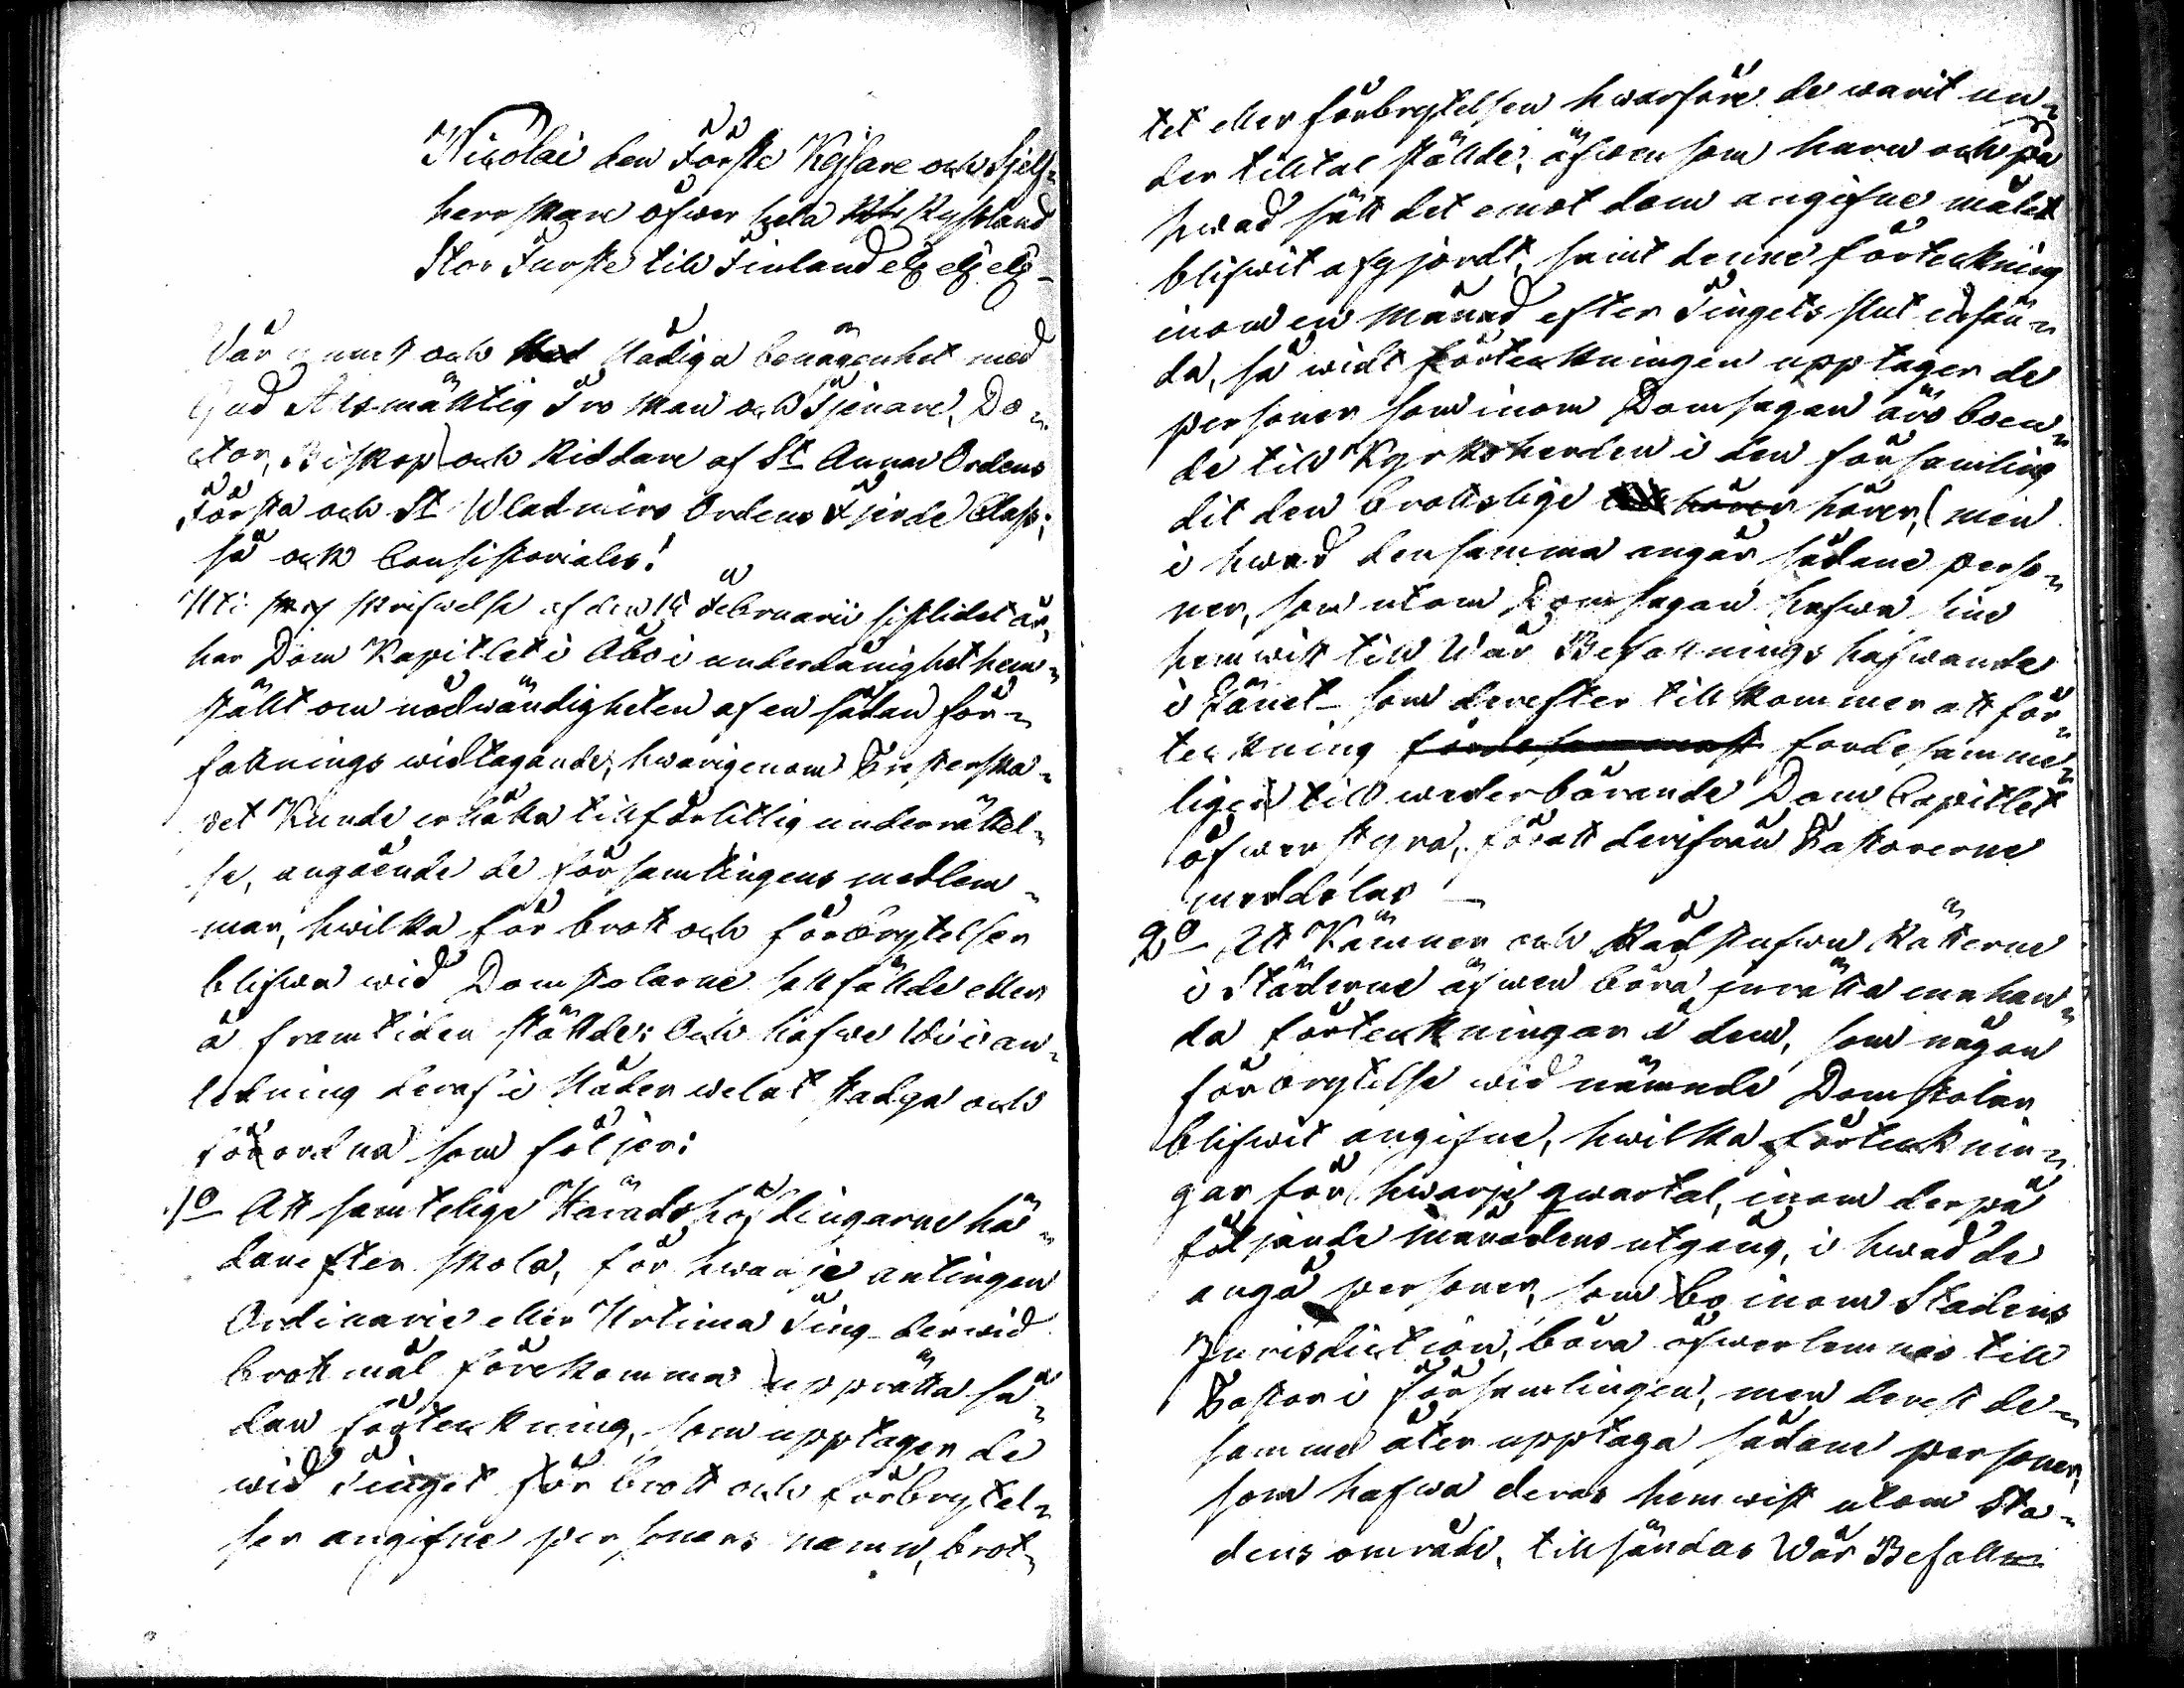 Nicolai den Förste Kejsare och Sjelf=
herrskare öfwer hela Ryssland
Stor Furste till Finland etc etc etc_
Wår ynnest och Nådiga benägenhet med
Gud Allsmäktig Tro Man och Tjenare, Do=
ctor, Biskop och Riddare af St Annæ Ordens
Första och St Wladimirs Ordens Fjerde Class;
så ock Consistoriales!
Uti skrifwelse af den Februarii sistlidet år,
har Dom Kapitlet i Åbo i underdånighet hem=
stält om nödwändigheten af en sådan för=
fattnings widtagande, hwarigenom Presterska=
pet kunde erhålla tillförlitlig underrättel=
se, angående de församlingens medlem=
mar, hwilka för brott och förbrytelser
blifwa wid Domstolarne sakfällde eller
å framtiden ställde: Och hafwe Wi i an=
ledning deraf i Nåder welat stadga och
förordna som följer:
1o Att samtelige Häradshöfdingarne hä=
danefter skola, för hwarje antingen
Ordinarie eller Urtima Ting derwid
brottmål förekomma upprätta så=
dan förteckning, som upptager de
wid Tinget för brott och förbrytel=
ser angifne personers namn, brot=
tet eller förbrytelsen hwarföre de warit un=
der tilltal ställde, äfwensom huru och på
hwad sätt det emot dem angifne målet
blifwit afgjordt, samt denne förteckning
inom en månad efter Tingets slut insän=
da, så widt förteckningen upptager de
personer som inom Domsagan äro boen=
de till Kyrkoherden i den församling
dit den brottslige hörer, men
i hwad densamma angår sådane perso=
ner, som utom Domsagan hafwa sine
hemwist till Wår Befallningshafwande
i Länet_ som derefter tillkommer att för=
teckning fordersamme=
ligen till wederbörande Dom Capitlet
öfwerstyra, för att derifrån Pastorerne
meddelas_
2o_ Att Kämner och Rådstufwu Rätterne
i Städerne äfwen böra inrätta enahan=
da förteckningar å dem, som någon
förbrytelse wid nämnde Domstolar
blifwit angifne, hwilka förtecknin=
gar för hwarje qwartal, inom derpå
följande månadens utgång, i hwad de
angå personer, som bo inom Stadens
Jurisdiction, böra öfwerlemnas till
Pastor i församlingen, men derest de=
samma åter upptaga sådane personer,
som hafwa deras hemwist utom Sta=
dens område, tillsändas Wår Befall=